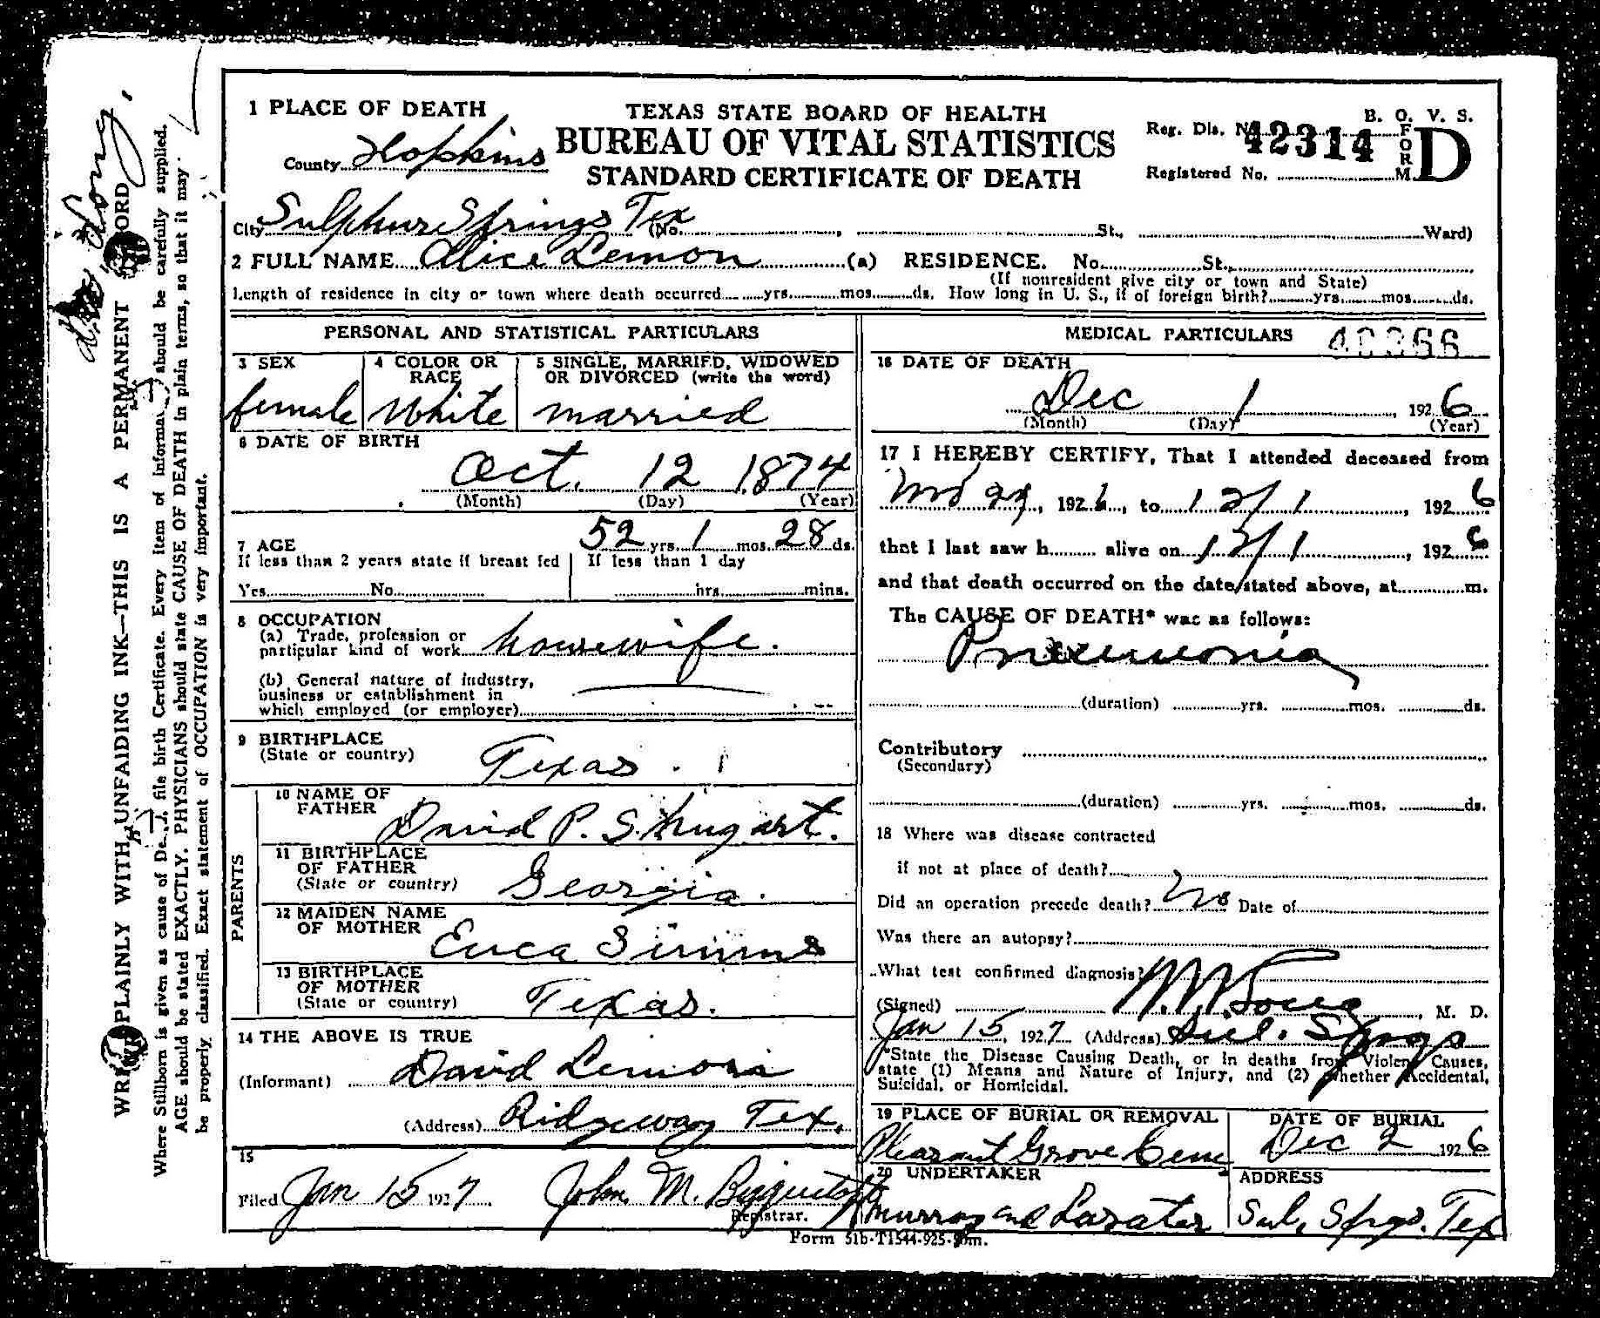 1 PLACE OF DEATH
County Hopkins
TEXAS STATE BOARD OF HEALTH
BUREAU OF VITAL STATISTICS
STANDARD CERTIFICATE OF DEATH
B. O. V. S.
FORM D
Reg. Dis. No. 42314
Registered No.
City Sulphur Springs Tex (No. , St., Ward)
2 FULL NAME Alice Lemon (a) RESIDENCE. No. St.,
(If nonresident give city or town and State)
Length of residence in city or town where death occurred yrs. mos. ds. How long in U. S., if of foreign birth? yrs. mos. ds.
PERSONAL AND STATISTICAL PARTICULARS
3 SEX
female
4 COLOR OR RACE
White
5 SINGLE, MARRIED, WIDOWED
OR DIVORCED (write the word)
married
6 DATE OF BIRTH
Oct. 12 1874
(Month) (Day) (Year)
7 AGE 52 yrs. 1 mos. 28 ds.
If less than 2 years state if breast fed
Yes No
If less than 1 day
hrs. mins.
8 OCCUPATION
(a) Trade, profession or
particular kind of work housewife.
(b) General nature of industry,
business or establishment in
which employed (or employer)
9 BIRTHPLACE
(State or country) Texas.
PARENTS
10 NAME OF
FATHER David P. Shugart.
11 BIRTHPLACE
OF FATHER
(State or country) Georgia.
12 MAIDEN NAME
OF MOTHER Simms
13 BIRTHPLACE
OF MOTHER
(State or country) Texas.
14 THE ABOVE IS TRUE
(Informant) David Lemon
(Address) Ridgeway Tex.
15
Filed Jan 15 1927 John M.
Registrar.
MEDICAL PARTICULARS
16 DATE OF DEATH
Dec 1, 1926
(Month) (Day) (Year)
17 I HEREBY CERTIFY, That I attended deceased from
, 1926, to 12/1, 1926
that I last saw h alive on 12/1, 1926
and that death occurred on the date stated above, at m.
The CAUSE OF DEATH* was as follows:
Pneumonia
(duration) yrs. mos. ds.
Contributory
(Secondary)
(duration) yrs. mos. ds.
18 Where was disease contracted
if not at place of death?
Did an operation precede death? No Date of
Was there an autopsy?
What test confirmed diagnosis?
(Signed) , M. D.
Jan 15, 1927 (Address) Sul. Spgs
*State the Disease Causing Death, or in deaths from Violent Causes,
state (1) Means and Nature of Injury, and (2) whether Accidental,
Suicidal, or Homicidal.
19 PLACE OF BURIAL OR REMOVAL
Pleasant Grove Cem
DATE OF BURIAL
Dec 2 1926
20 UNDERTAKER
Murray and Lasater
ADDRESS
Sul. Spgs. Tex
Form 51b-T1544-925-50m.
WRITE PLAINLY WITH UNFAIDING INK—THIS IS A PERMANENT RECORD
Where Stillborn is given as cause of Death file birth Certificate. Every item of information should be carefully supplied.
AGE should be stated EXACTLY. PHYSICIANS should state CAUSE OF DEATH in plain terms, so that it may
be properly classified. Exact statement of OCCUPATION is very important.